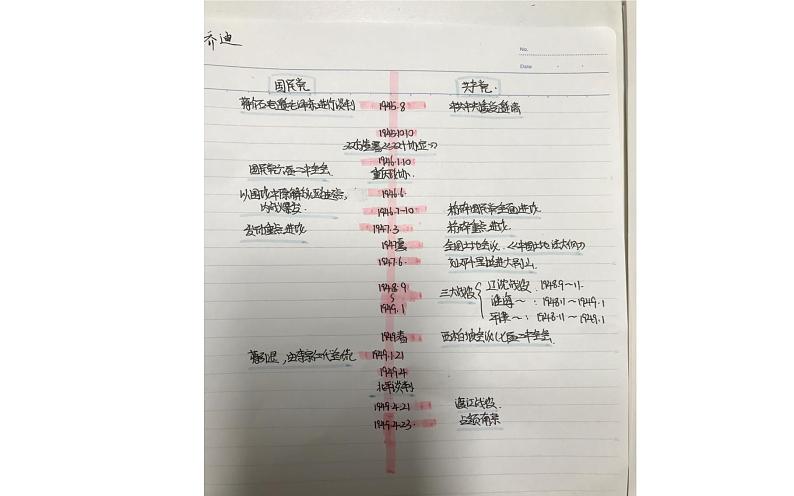 乔迪
No.
Date
国民党 共产党.
蒋介石电邀毛泽东进行谈判 1945.8 中共中央接受邀请
1945.10.10
双方签署《双十协定》
1946.1.10
国民党六届二中全会 重庆政协
以围攻中原解放区为起点, 1946.6
内战爆发.
1946.7-10 粉碎国民党全面进攻
发动重点进攻 1947.3 粉碎重点进攻
1947夏 全国土地会议.《中国土地法大纲》
1947.6. 刘邓千里挺进大别山.
1948.9
~
1949.1
三大战役
辽沈战役:1948.9~11.
淮海~:1948.11~1949.1
平津~:1948.11~1949.1
1949春 西柏坡会议(七届二中全会
蒋引退,由李宗仁代总统 1949.1.21
1949.4
北平谈判
1949.4.21 渡江战役
1949.4.23. 占领南京